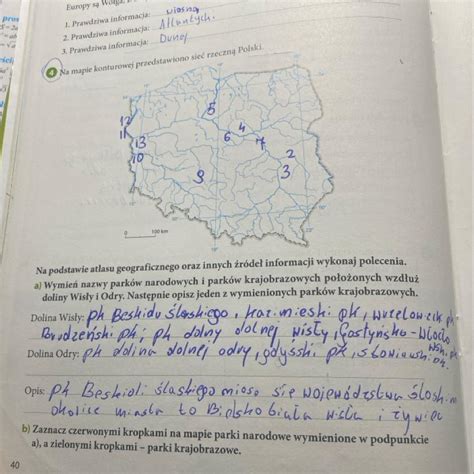 Europy są Wołga,
1. Prawdziwa informacja: wiosną
2. Prawdziwa informacja: Atlantyckich.
3. Prawdziwa informacja: Dunaj
4 Na mapie konturowej przedstawiono sieć rzeczną Polski.
5
12
4
11
6
7
13
2
10
3
9
0 100 km
Na podstawie atlasu geograficznego oraz innych źródeł informacji wykonaj polecenia.
a) Wymień nazwy parków narodowych i parków krajobrazowych położonych wzdłuż
doliny Wisły i Odry. Następnie opisz jeden z wymienionych parków krajobrazowych.
Dolina Wisły: pk Beskidu śląskiego, kazimieski pk,
pk; pk doliny dolnej wisły, Gostyńsko - Włocła
Dolina Odry: pk dolina dolnej odry, pk,
Opis: pk Beskidi śląskiego miesc się województwa
okolice miasta to Bielsko biała wisła i żywiec
b) Zaznacz czerwonymi kropkami na mapie parki narodowe wymienione w podpunkcie
a), a zielonymi kropkami – parki krajobrazowe.
40